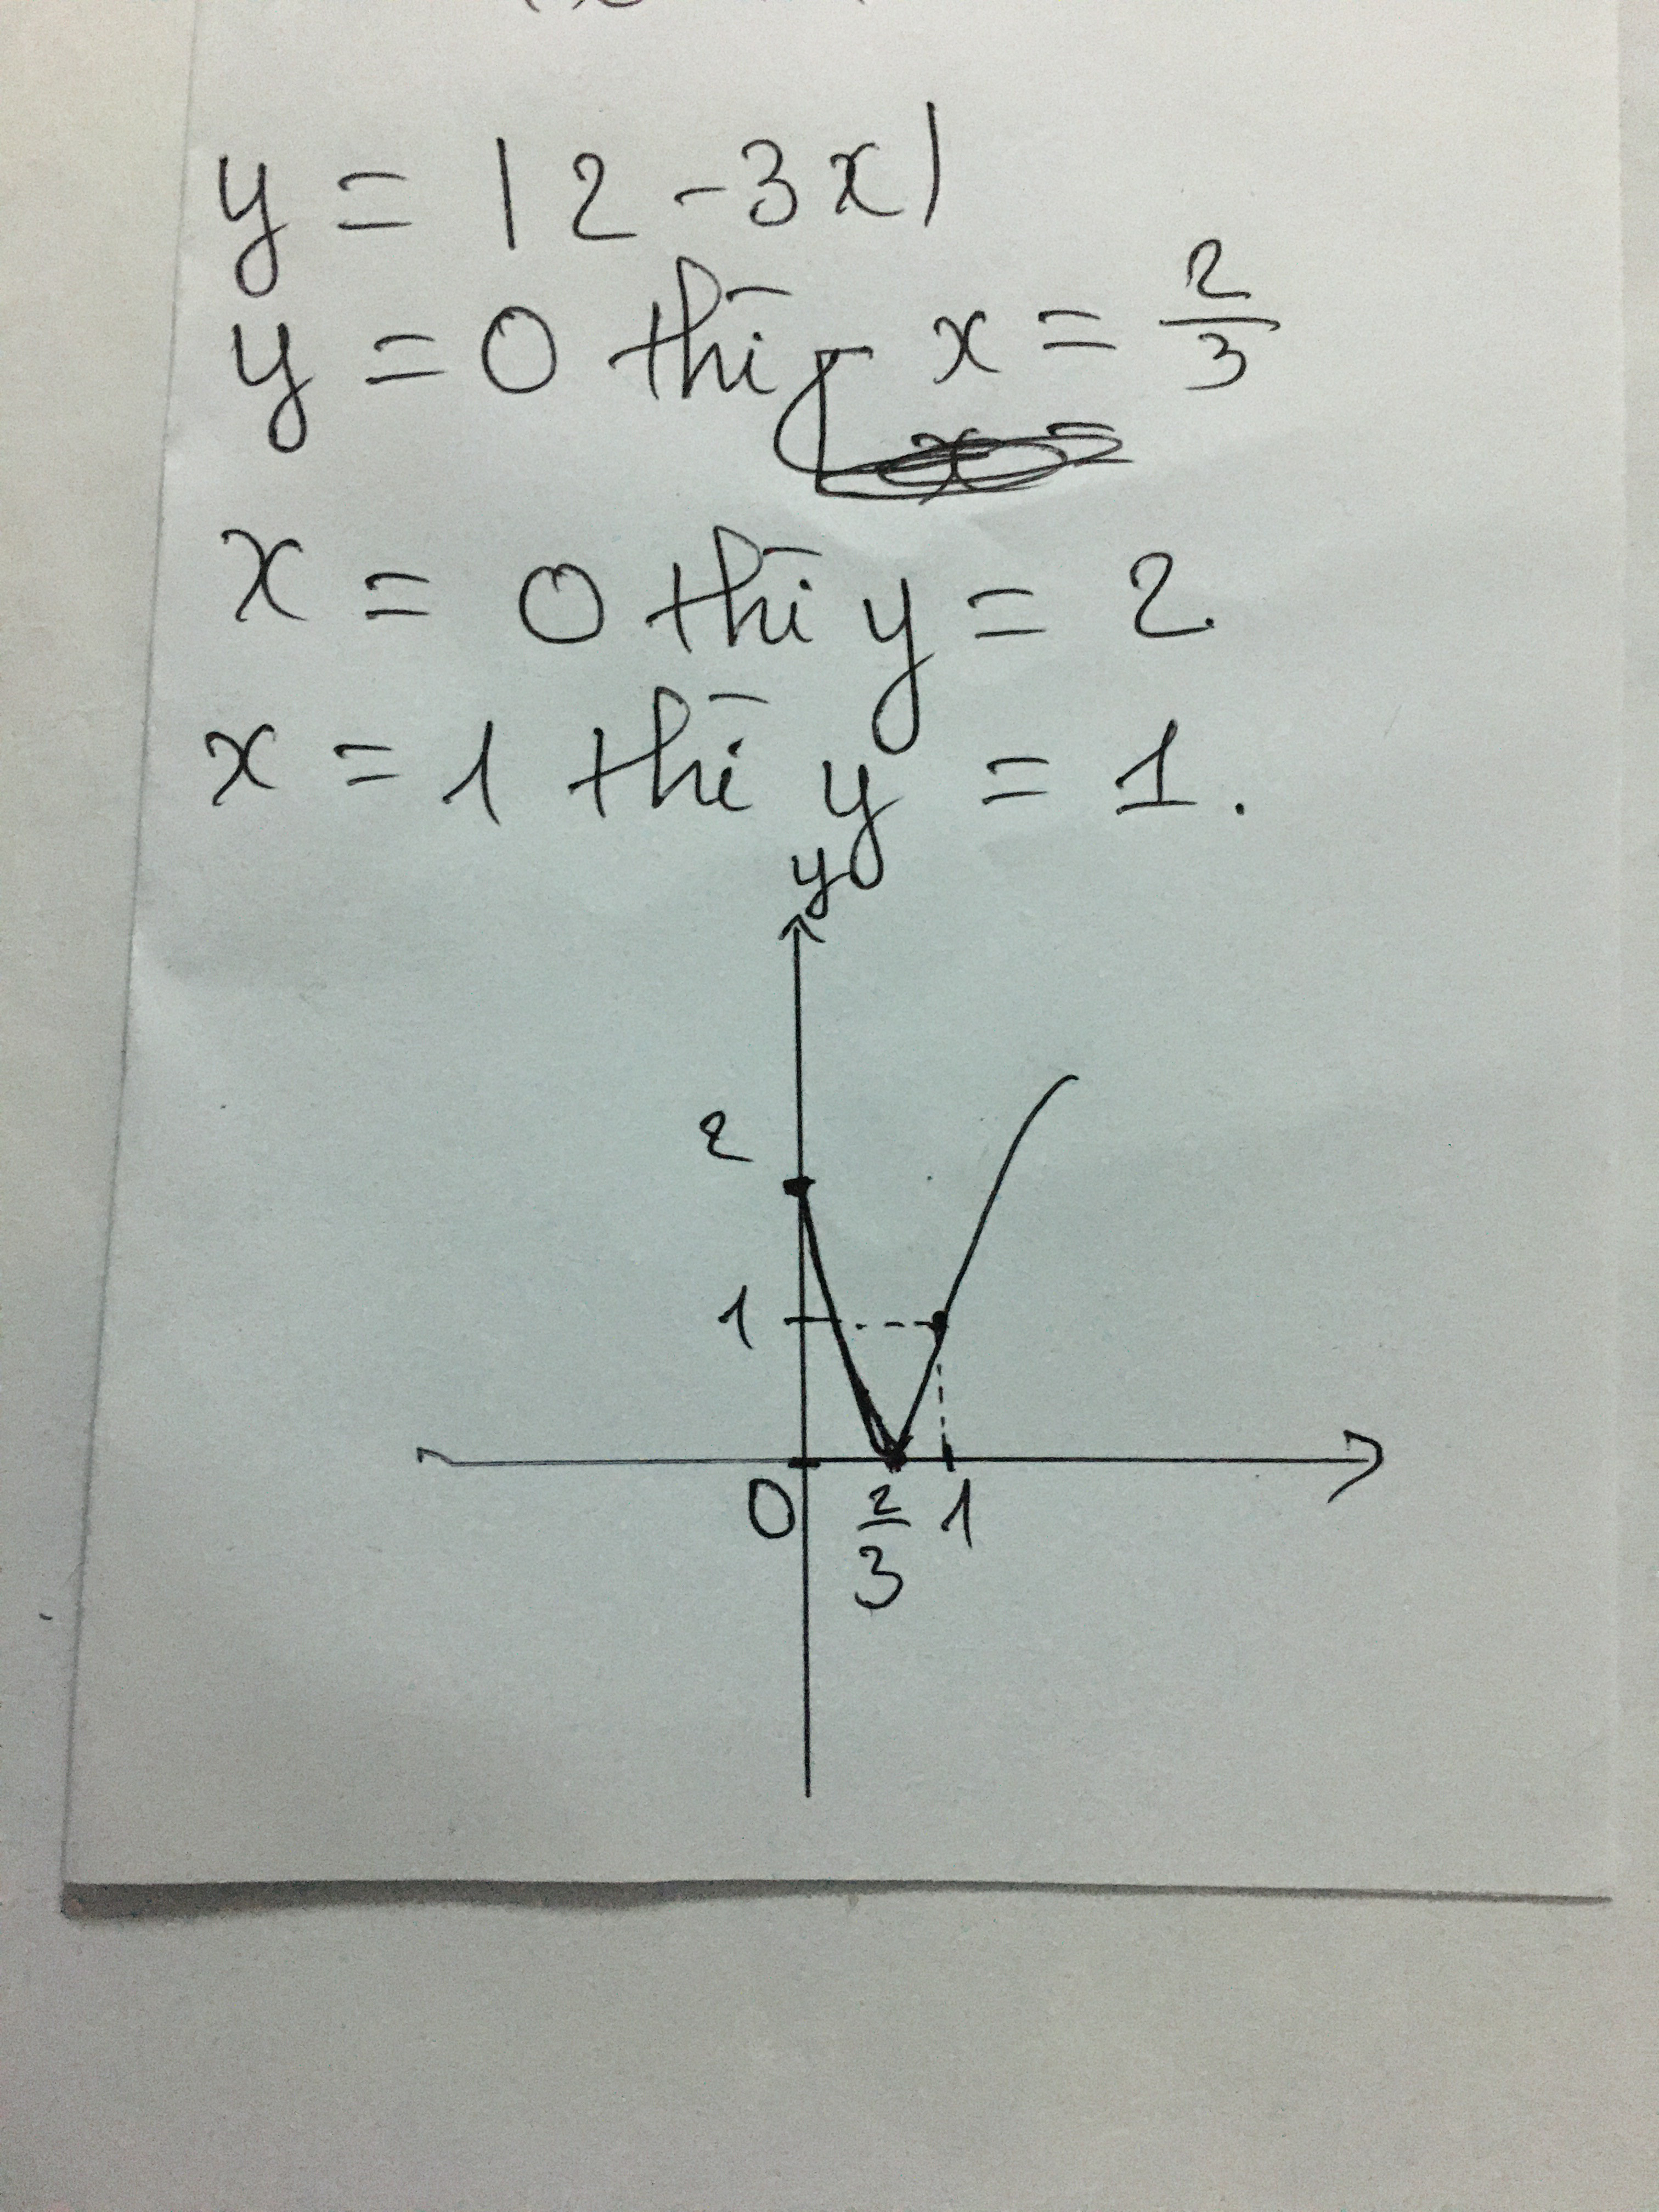 y = |2 - 3x|
y = 0 thì x = 2/3
x = 0 thì y = 2.
x = 1 thì y = 1.
y
2
1
0 2/3 1